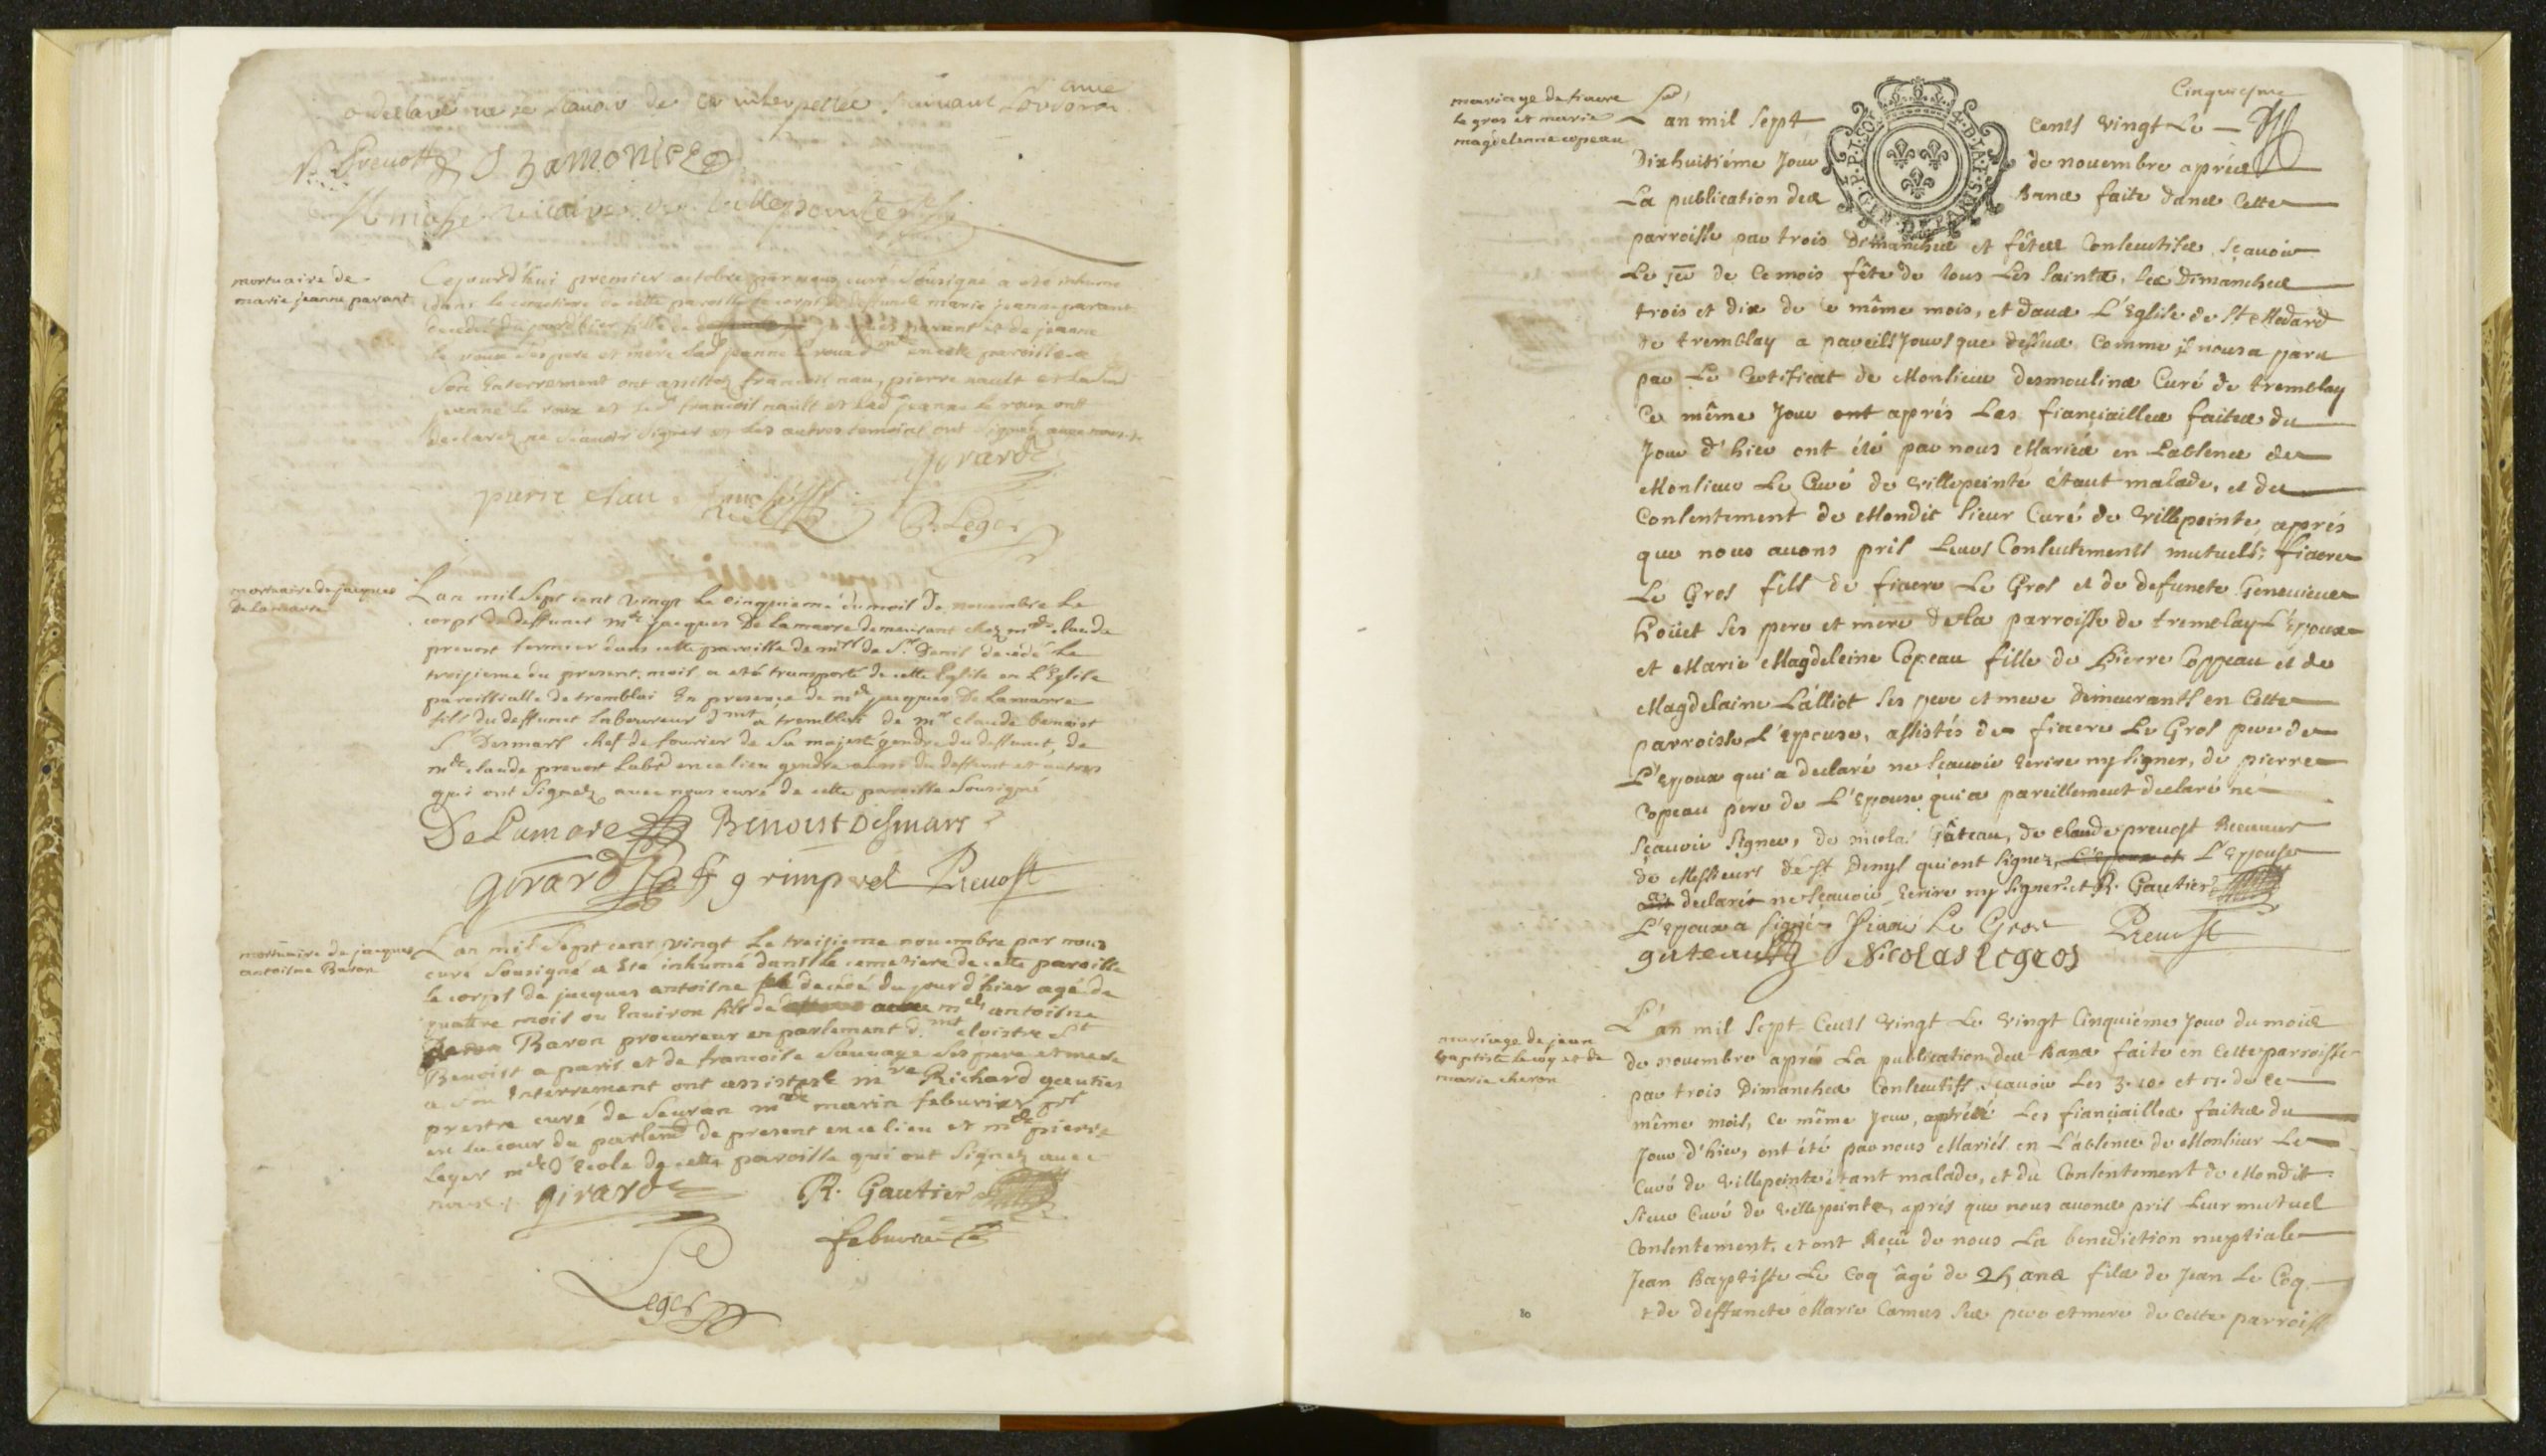 a declaré ne scauoir de ce interpellée suiuant
P. Preuost
mortuaire de
marie jeanne parant
Cejourd'hui premier octobre par nous curé sousigné a eté inhumé
dans le cemetiere de cette paroisse le corps de deffuncte marie jeanne parant
decedée du jourd'hier fille de jacques parant et de jeanne
le roux ses pere et mere lad. jeanne le roux en cette paroisse a
son enterrement ont assistez francois nau, pierre nault et lad.
jeanne le roux et led. francois nault et lad. jeanne le roux ont
declarez ne scauoir signer et les autres temoins ont signez auec nous
girard
pierre Nau
P. Leger
mortuaire de jacques
Delamarre
L'an mil Sept cent vingt le cinquieme du mois de nouembre le
corps de deffunct mr. jacques Delamarre demeurant chez mr. claude
preuost fermier dans cette paroisse de mrs de St Denis decedé le
troisieme du present mois a eté transporté de cette Eglise en L'Eglise
paroissialle de tremblai En presence de mr jacques De Lamarre
fils du deffunct laboureur dmt a tremblai de mr claude benoist
Sr Desmars chef de fourier de Sa majesté gendre du deffunct, de
mr claude preuost Labr en ce lieu gendre aussi du deffunct et autres
qui ont Signez auec nous curé de cette paroisse Sousigné
DeLamare Benoist Desmars
girard grimperel Preuost
mortuaire de jacques
antoisne Baron
L'an mil Sept cent vingt le treisieme nouembre par nous
curé Sousigné a Eté inhumé dans le cemetiere de cette paroisse
le corps de jacques antoisne decedé du jour d'hier agé de
quattre mois ou Enuiron fils de mr antoisne
Baron procureur en parlement d.mt cloistre St
Benoist a paris et de francoise Sauuage Ses pere et mere
a Son Interrement ont assistez mre Richard gautier
prestre curé de Seuran mre marin feburier
en la cour de parlemt de present en ce lieu et mr pierre
Leger mr d'Ecole de cette paroisse qui ont Signez auec
nous girard R. Gautier
febvrier
Leger
Cinquiesme
mariage de fiacre
le gros et marie
magdelenne copeau
L'an mil Sept cents vingt Le
Dixhuitiéme Jour de nouembre aprés
La publication des Bans faite dans Cette
parroisse par trois Dimanches et fêtes Consecutifes, Sçauoir
Le jer de Ce mois fête de tous Les Saints, Les Dimanches
trois et dix de ce même mois, et dans L'Eglise de St Medard
de tremblay a pareils Jours que dessus Comme il nous a paru
par Le Certificat de Monsieur desmoulins Curé de tremblay
Ce même Jour ont aprés Les fiançiailles faites du
Jour d'hier ont été par nous Mariés en L'absence de
Monsieur Le Curé de villepeinte étant malade, et du
Consentement de Mondit Sieur Curé de villepeinte, apprés
que nous auons pris Leurs Consentements mutuels: fiacre
Le Gros fils de fiacre Le Gros et de defuncte Geneuieue
hoüet Ses pere et mere de la parroisse de tremblay L'Epoux
et Marie Magdeleine Copeau fille de Pierre Coppeau et de
Magdelaine Lalliot Ses pere et mere demeurants en Cette
parroisse L'epouse, assistés de fiacre Le Gros pere de
L'Epoux qui a declaré ne Sçauoir Ecrire ny signer, de pierre
Copeau pere de L'Epouse qui a pareillement declaré ne
Sçauoir Signer, de nicolas Gâteau, de Claude preuost Receueur
de Messieurs de St Denys qui ont signez, L'Epoux et L'Epouse
declaré ne Sçauoir Ecrire ny signer et R. Gautier
L'Epoux a signé Fiacre Le Gros Preuost
gateau Nicolas legros
mariage de jean
baptiste le coq et de
marie cheron
L'an mil Sept Cents vingt Le vingt Cinquiéme Jour du mois
de nouembre aprés La publication des Bans faite en Cette parroisse
par trois Dimanches Consecutifs, Sçauoir Les 3. 10. et 17. de Ce
même mois, Ce même Jour, aprés Les fiançiailles faites du
Jour d'hier, ont été par nous Mariés en L'absence de Monsieur Le
Curé de villepeinte étant malade, et du Consentement de Mondit
Sieur Curé de villepeinte, aprés que nous auons pris Leur mutuel
Consentement, et ont Reçû de nous La benediction nuptiale
Jean Baptiste Le Coq âgé de 25 ans fils de Jean Le Coq
et de deffuncte Marie Camus Ses pere et mere de Cette parroiss
10